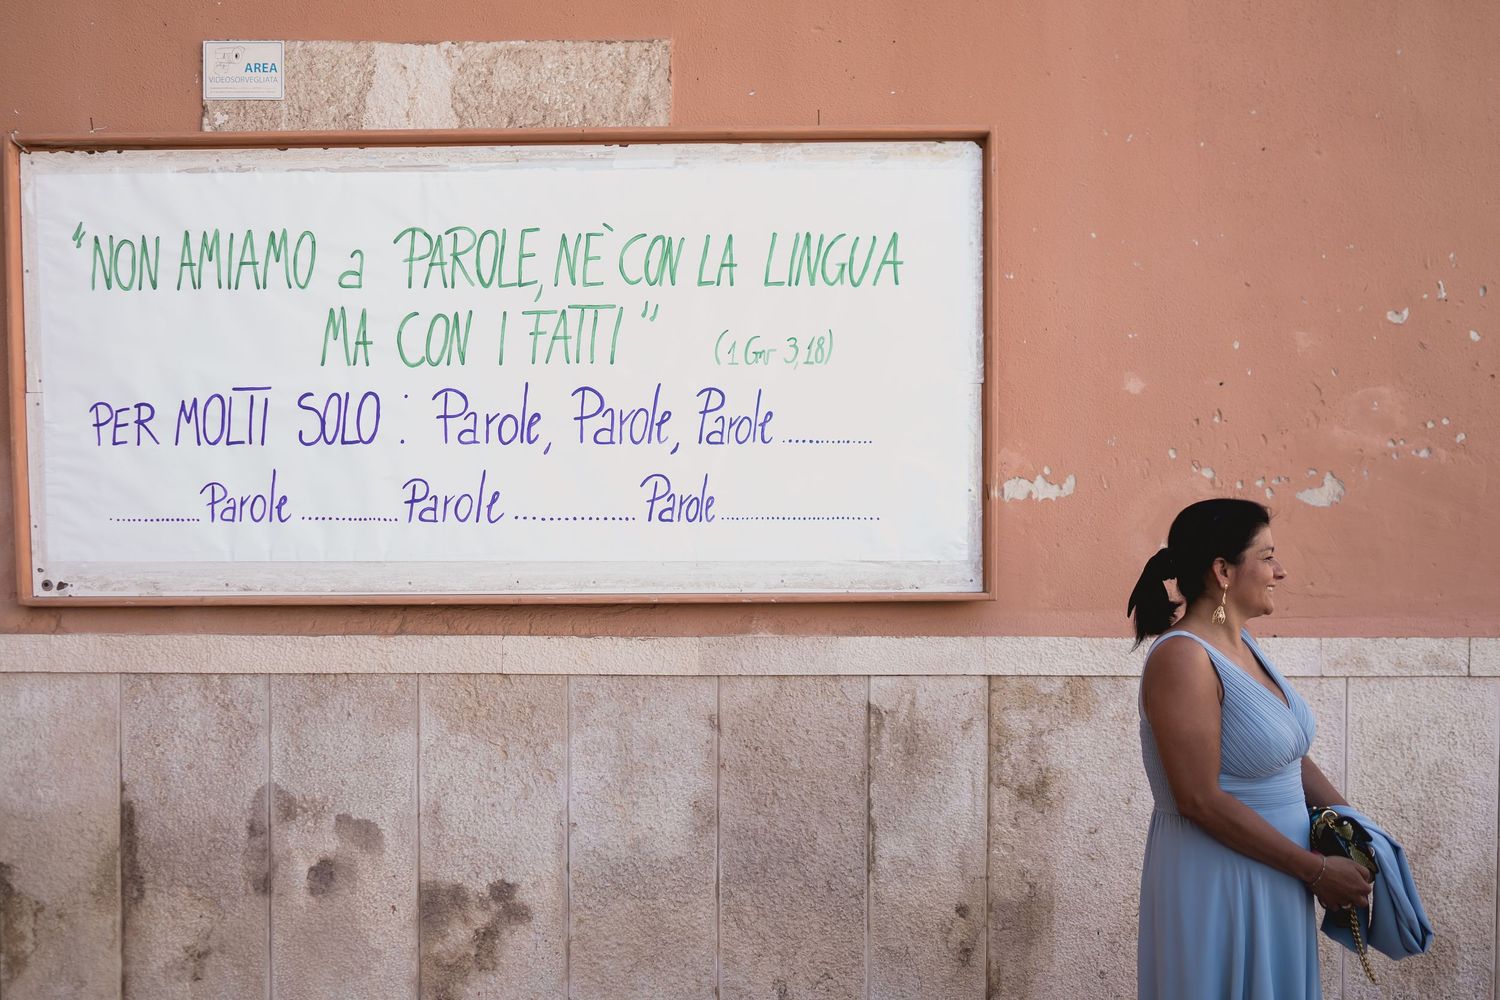 AREA
VIDEOSORVEGLIATA
"NON AMIAMO a PAROLE, NÈ CON LA LINGUA
MA CON I FATTI" (1 Gv 3,18)
PER MOLTI SOLO : Parole, Parole, Parole ..............
.............. Parole .............. Parole .............. Parole ......................